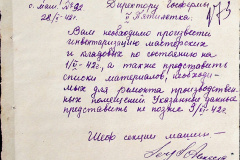 о. маш. № 92
28/V-42г.
Директору Госфермы
"II Пятилетка"
173
Вам необходимо произвести
инвентаризацию мастерских
и кладовых по состоянию на
1/VI-42г., а также представить
списки материалов, необходи-
мых для ремонта производствен-
ных помещений. Указанные данные
представить не позже 3/VI-42г.
Шеф секции машин-